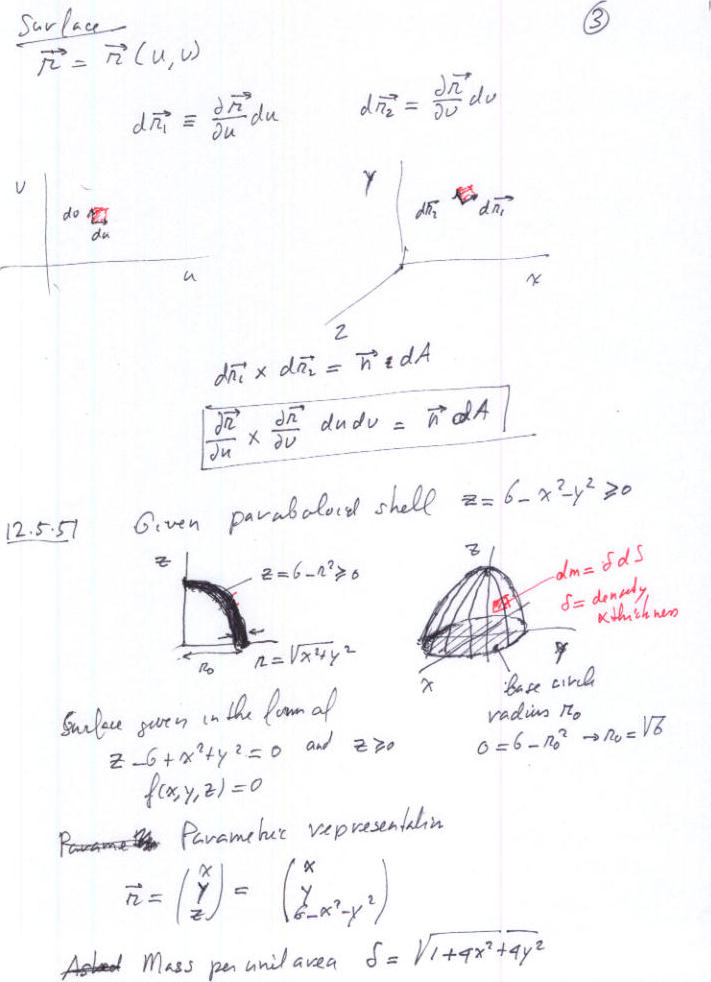 Surface
③
r⃗ = r⃗ (u, v)
dr⃗₁ ≡ ∂r⃗/∂u du
dr⃗₂ = ∂r⃗/∂v dv
v
dv
du
u
y
dr⃗₂
dr⃗₁
x
z
dr⃗₁ × dr⃗₂ = n⃗ dA
∂r⃗/∂u × ∂r⃗/∂v du dv = n⃗ dA
12.5.51
Given paraboloid shell z = 6 - x² - y² ≥ 0
z
z = 6 - r² ≥ 0
r₀
r = √x²+y²
z
dm = δ dS
δ = density
× thickness
x
y
base circle
radius r₀
0 = 6 - r₀² → r₀ = √6
Surface given in the form of
z - 6 + x² + y² = 0 and z ≥ 0
f(x, y, z) = 0
Parametric representation
r⃗ = (x y z) = (x y 6-x²-y²)
Mass per unit area δ = √1+4x²+4y²